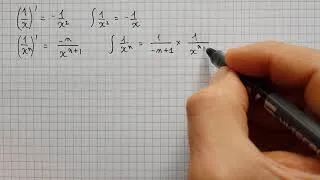 (1/x)' = -1/x² ∫ 1/x² = -1/x
(1/xⁿ)' = -n/xⁿ⁺¹ ∫ 1/xⁿ = 1/-n+1 × 1/xⁿ